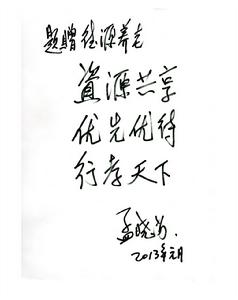 题赠德源养老
资源共享
优先优待
行孝天下
孟晓苏
2013年元月